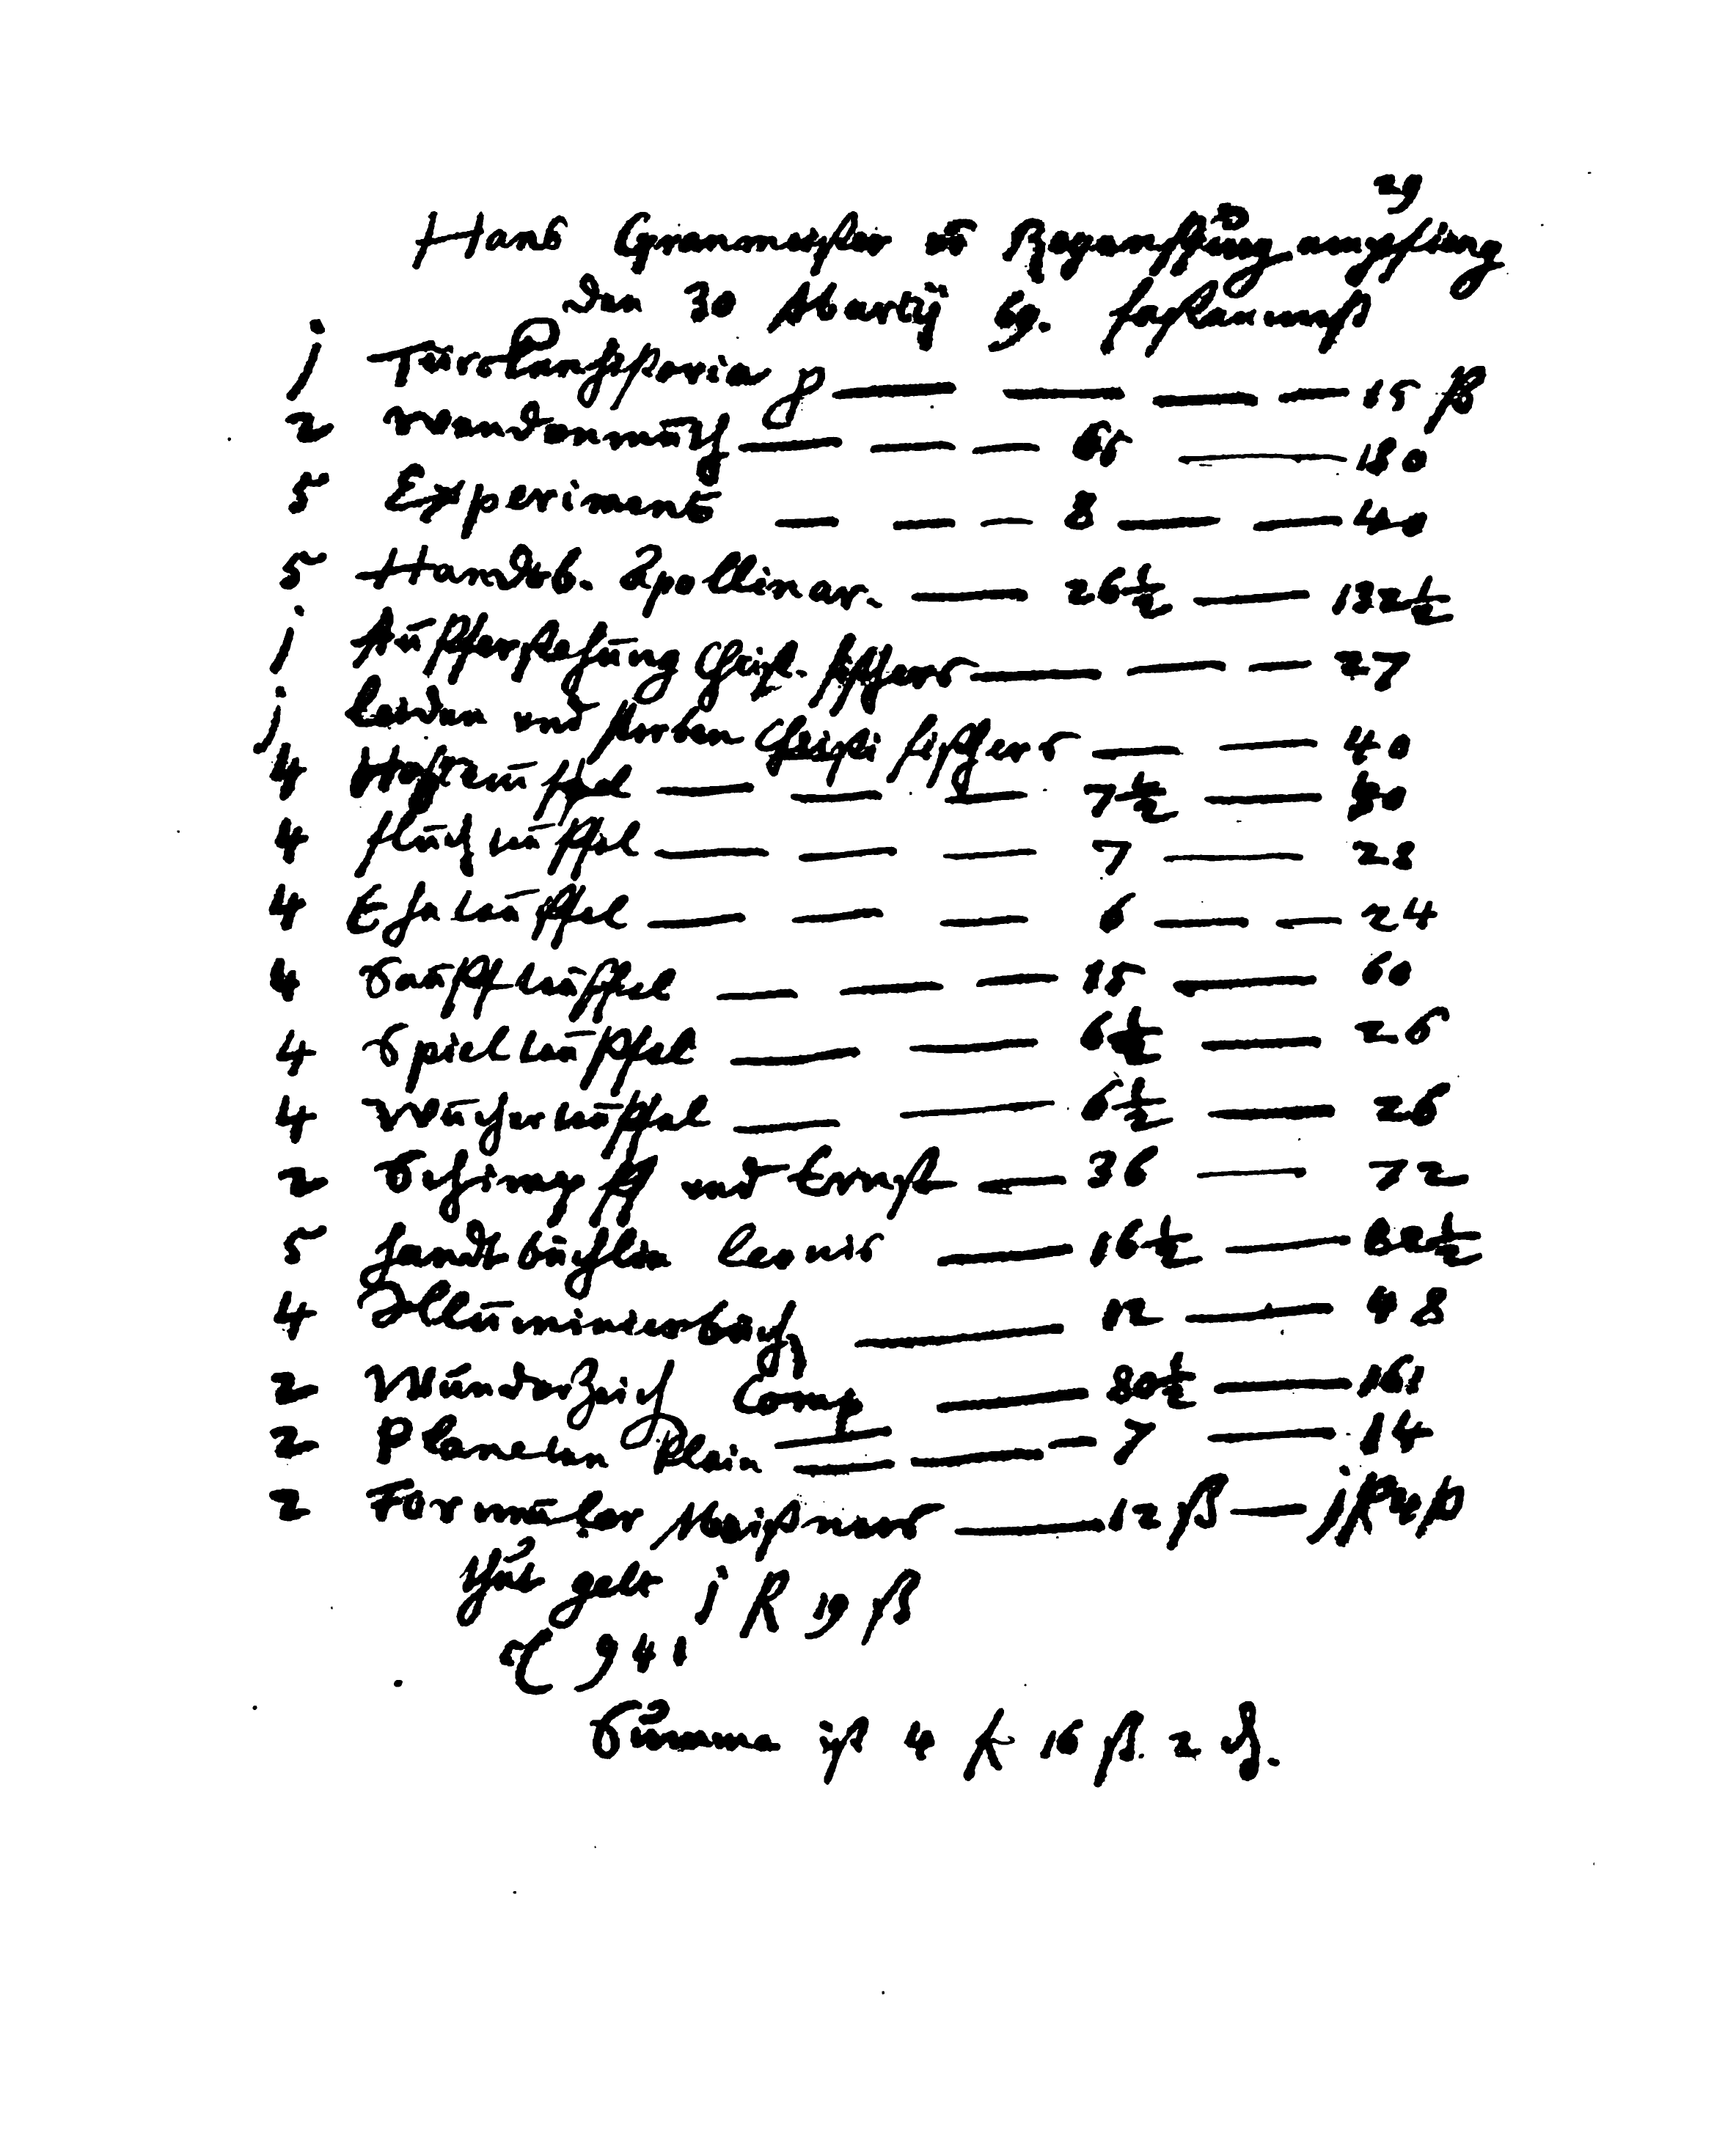 Hans Granmeister vō Regenspurg empfieng
den 30 Martij 69. fastenmeß
j Türckenhistoria — — — — 15 ß
2 Wendonmut — — — 65 — 130
5 Experiment — — — 8 — — 40
5 Handtb. Apollinar. — 26½ — 132½
j Aufferstehung Christ. Schffers — — — 27
j leiden und sterben Christi — — 40
4 Hoffteuffel — — — 7½ — 30
4 fluchteuffel — — — 7 — 28
4 Ehteuffel — — — 6 — — 24
4 Saufteuffel — — — 15 — 60
4 Spielteuffel — — 6½ — 26
4 Wucherteuffel — — 6½ — 26
2 Schimpff und Ernst — 36 — 72
5 handtbüchlin — 16½ — 82½
4 Illuminierbuch — 12 — 48
2 Wunderzeich Comp — 80½ — 161
2 Planeten klein — — — 7 — 14
2 Formular Meißners — 12 ß — j fl 4 ß
Thut gelt j fl 19 ß
941
Summa ist 4 fl 16 ß. 2 ₰.